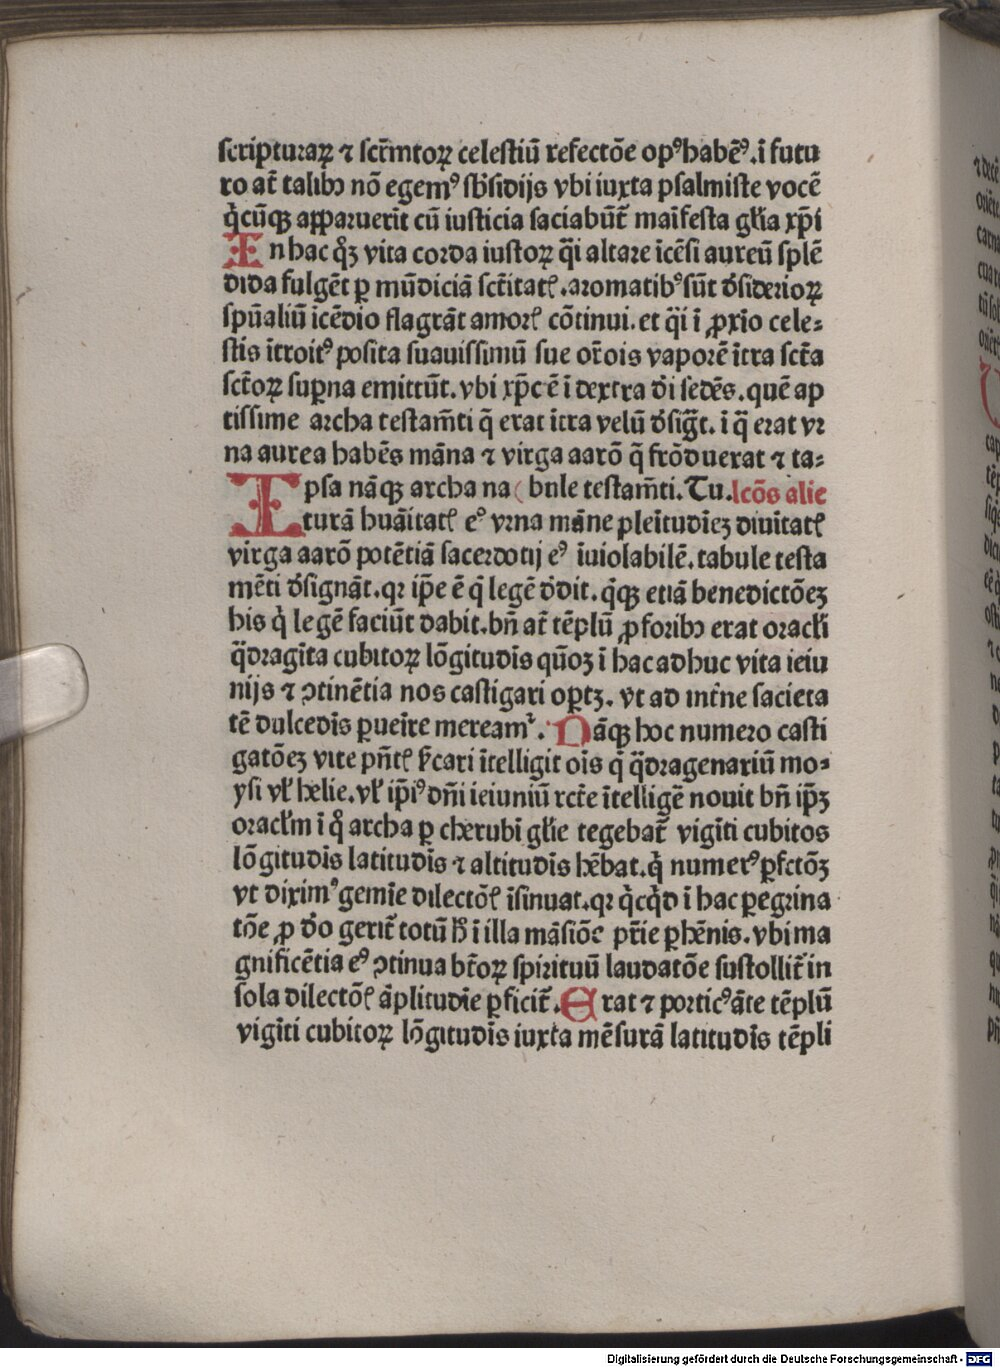 scripturaꝝ ⁊ scr̄mtoꝝ celestiū refectōe opꝰ habēꝰ. ī futu
ro at̄ talibꝫ nō egemꝰ sb̄sidijs vbi iuxta psalmiste vocē
q̇cūqꝫ apparuerīt cū iusticia saciabūt̄ maīfesta gl̄ia xp̄i
In hac qͦꝫ vita corda iustoꝝ q̄i altare īcēsi aureū splē
dida fulgēt ꝑ mūdiciā sct̄itatꝭ. aromatibꝰ sūt d̄siderioꝝ
spūaliū icēdio flagrāt amorꝭ cōtinui. et q̄i ī ꝓxīo cele⸗
stis ītroitꝰ posita suauissimū sue or̄ois vaporē ītra sct̄a
sct̄oꝝ suꝑna emittūt. vbi xp̄c ē ī dextra d̄i sedēs. quē ap
tissime archa testam̄ti q̄ erat ītra velū d̄siḡt. ī q̄ erat vr
na aurea habēs māna ⁊ virga aarō q̄ frōduerat ⁊ ta⸗
Ipsa nāqꝫ archa na ( bule testam̄ti. Tu. lcōs alie
turā huāitatꝭ eꝰ vrna māne pleītudīeꝫ diuītatꝭ
virga aarō potētiā sacerdotij eꝰ īuiolabilē. tabule testa
mēti d̄signāt. qꝛ ip̄e ē q̇ legē d̄dit. q̇qꝫ etiā benedictōeꝫ
his q̇ legē faciūt dabit. bn̄ at̄ tēplū ꝓ foribꝫ erat oracl̄i
q̄dragīta cubitoꝝ lōgitudīs qūoꝫ ī hac adhuc vita ieiu
nijs ⁊ ꝯtinētia nos castigari oꝑtꝫ. vt ad int̄ne sacieta
tē dulcedīs ꝑueīre mereamᷣ. Nāqꝫ hoc numero casti
gatōeꝫ vite pn̄tꝭ v̄cari ītelligit oīs q̇ q̄dragenariū mo⸗
ysi vl̄ helie. vl̄ ip̄iꝰ dn̄i ieiuniū rct̄e ītelligē nouit bn̄ ip̄ꝫ
oracl̄m ī qͦ archa ꝑ cherubī gl̄ie tegebat̄ vigīti cubitos
lōgitudīs latitudīs ⁊ altitudīs hēbat. q̇ numerꝰ ꝑfctōꝫ
vt diximꝰ gemīe dilectōꝭ īsinuat. qꝛ q̇cq̇d ī hac ꝑegrina
tōe ꝓ d̄o gerit̄ totū h̄ ī illa māsiōe pr̄ie ꝑhēnis. vbi ma
gnificētia eꝰ ꝯtinua bt̄oꝝ spirituū laudatōe sustollit̄ in
sola dilectōꝭ āplitudīe ꝑficit̄. Erat ⁊ porticꝰ āte tēplū
vigīti cubitoꝝ lōgitudīs iuxta mēsurā latitudīs tēpli
Digitalisierung gefördert durch die Deutsche Forschungsgemeinschaft - DFG